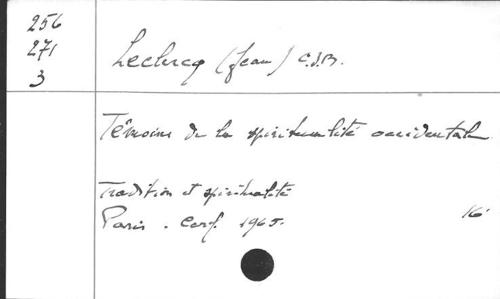 256
271
3
Leclercq (Jean) O.S.B.
Témoins de la spiritualité occidentale
Tradition et spiritualité
Paris. Cerf. 1965.
16°